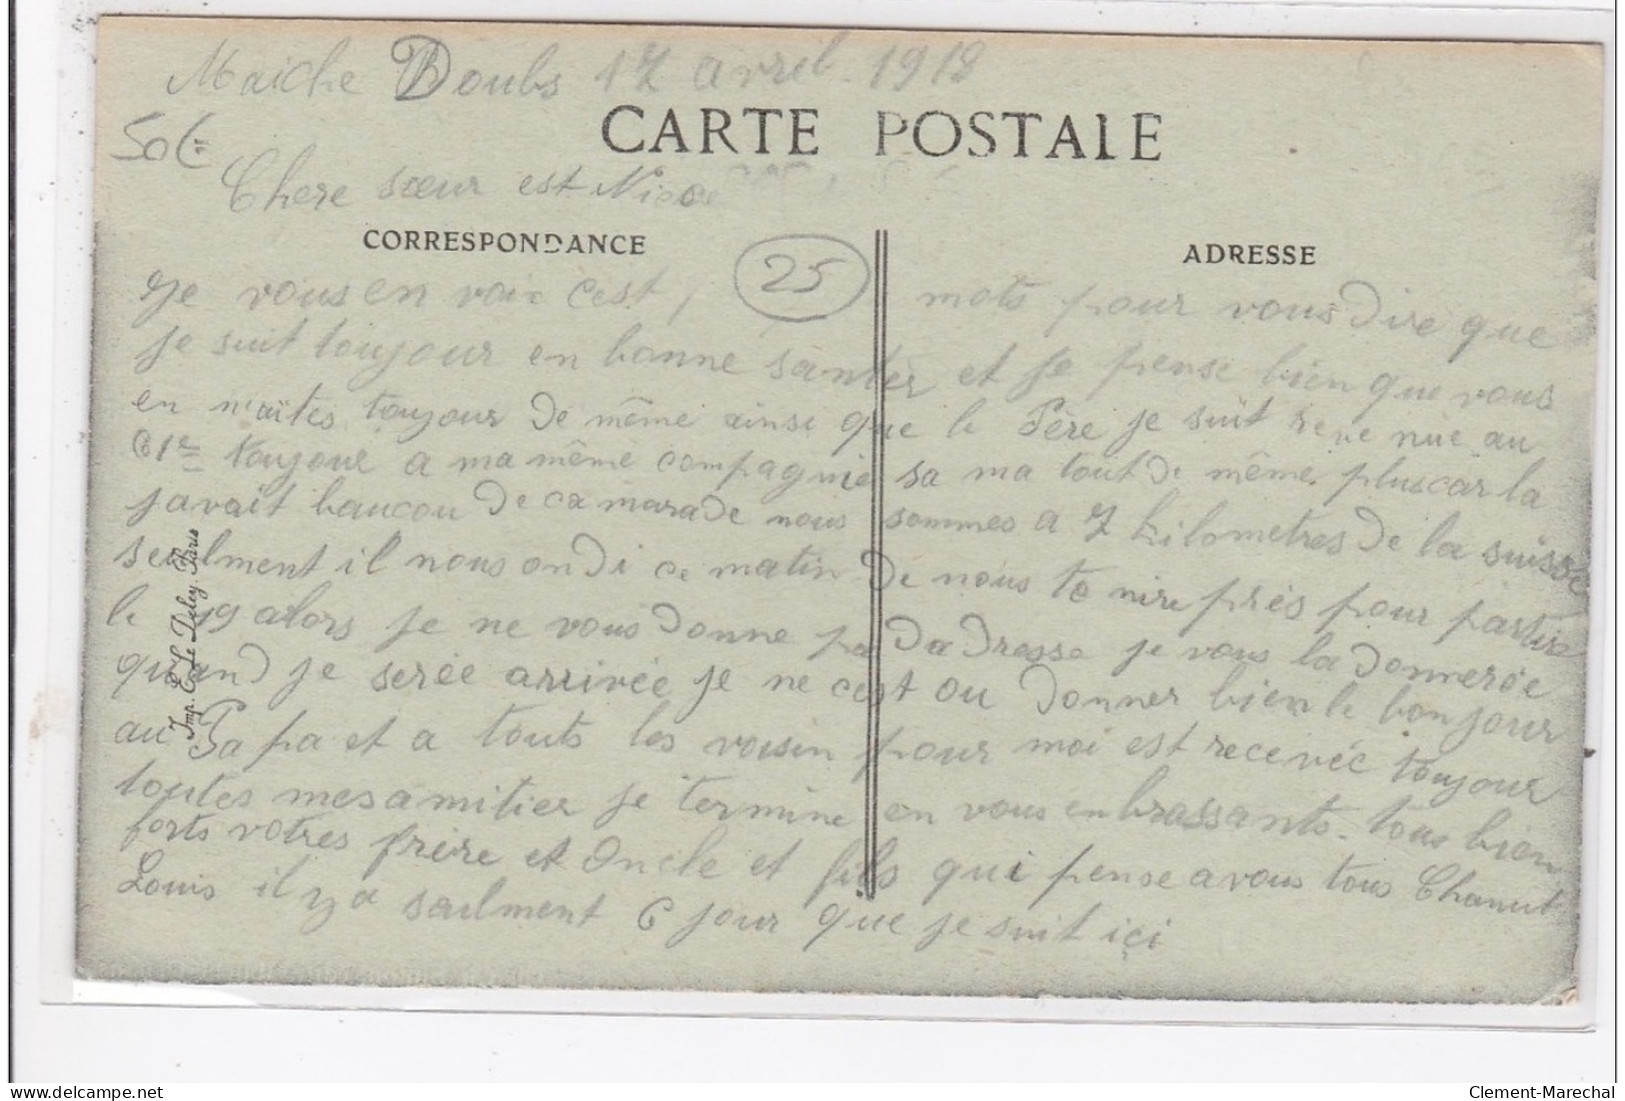 Maiche Doubs 17 avril 1918
50€
CARTE POSTALE
Chere sœur est Niece
CORRESPONDANCE
ADRESSE
25
Je vous en voie cest, mots pour vous dire que
je suit toujour en bonne santer et je pense bien que vous
en n'aites toujour de même ainse que le Père je suit re ve nue au
61e toujour a ma même compagnie sa ma tout de même plus car la
javait baucou de ca marade nous sommes a 7 kilometres de la suisse
seulment il nous on di ce matin de nous te nire près pour partire
le 19 alors je ne vous donne pa da dresse je vous la donnerée
quand je serée arrivée je ne cest ou donner bien le bonjour
au Papa et a touts les voisin pour moi est recevéc toujour
toutes mes amitier je termine en vous enbrassants tous bien
forts votres frère et Oncle et fils qui pense a vous tous Chanut
Louis il y a saulment 6 jour que je suit içi
Imp. E. Le Deley. Paris
Clement-Marechal